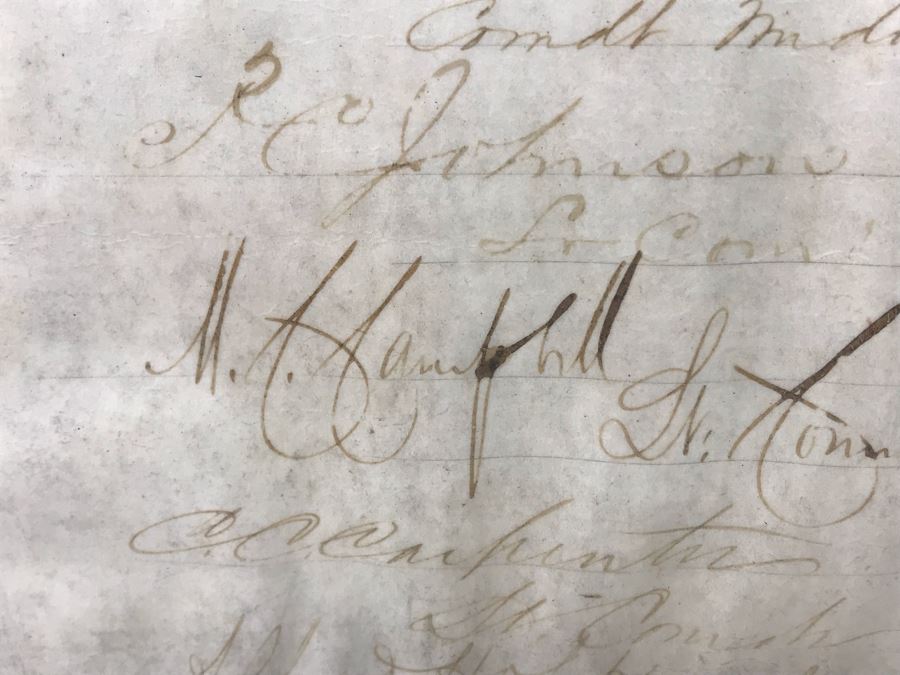 Comdt Mid
P. C. Johnson
Lt Com
M. C. Campbell
Lt. Com
C. C. Carpenter
Lt. Comdr